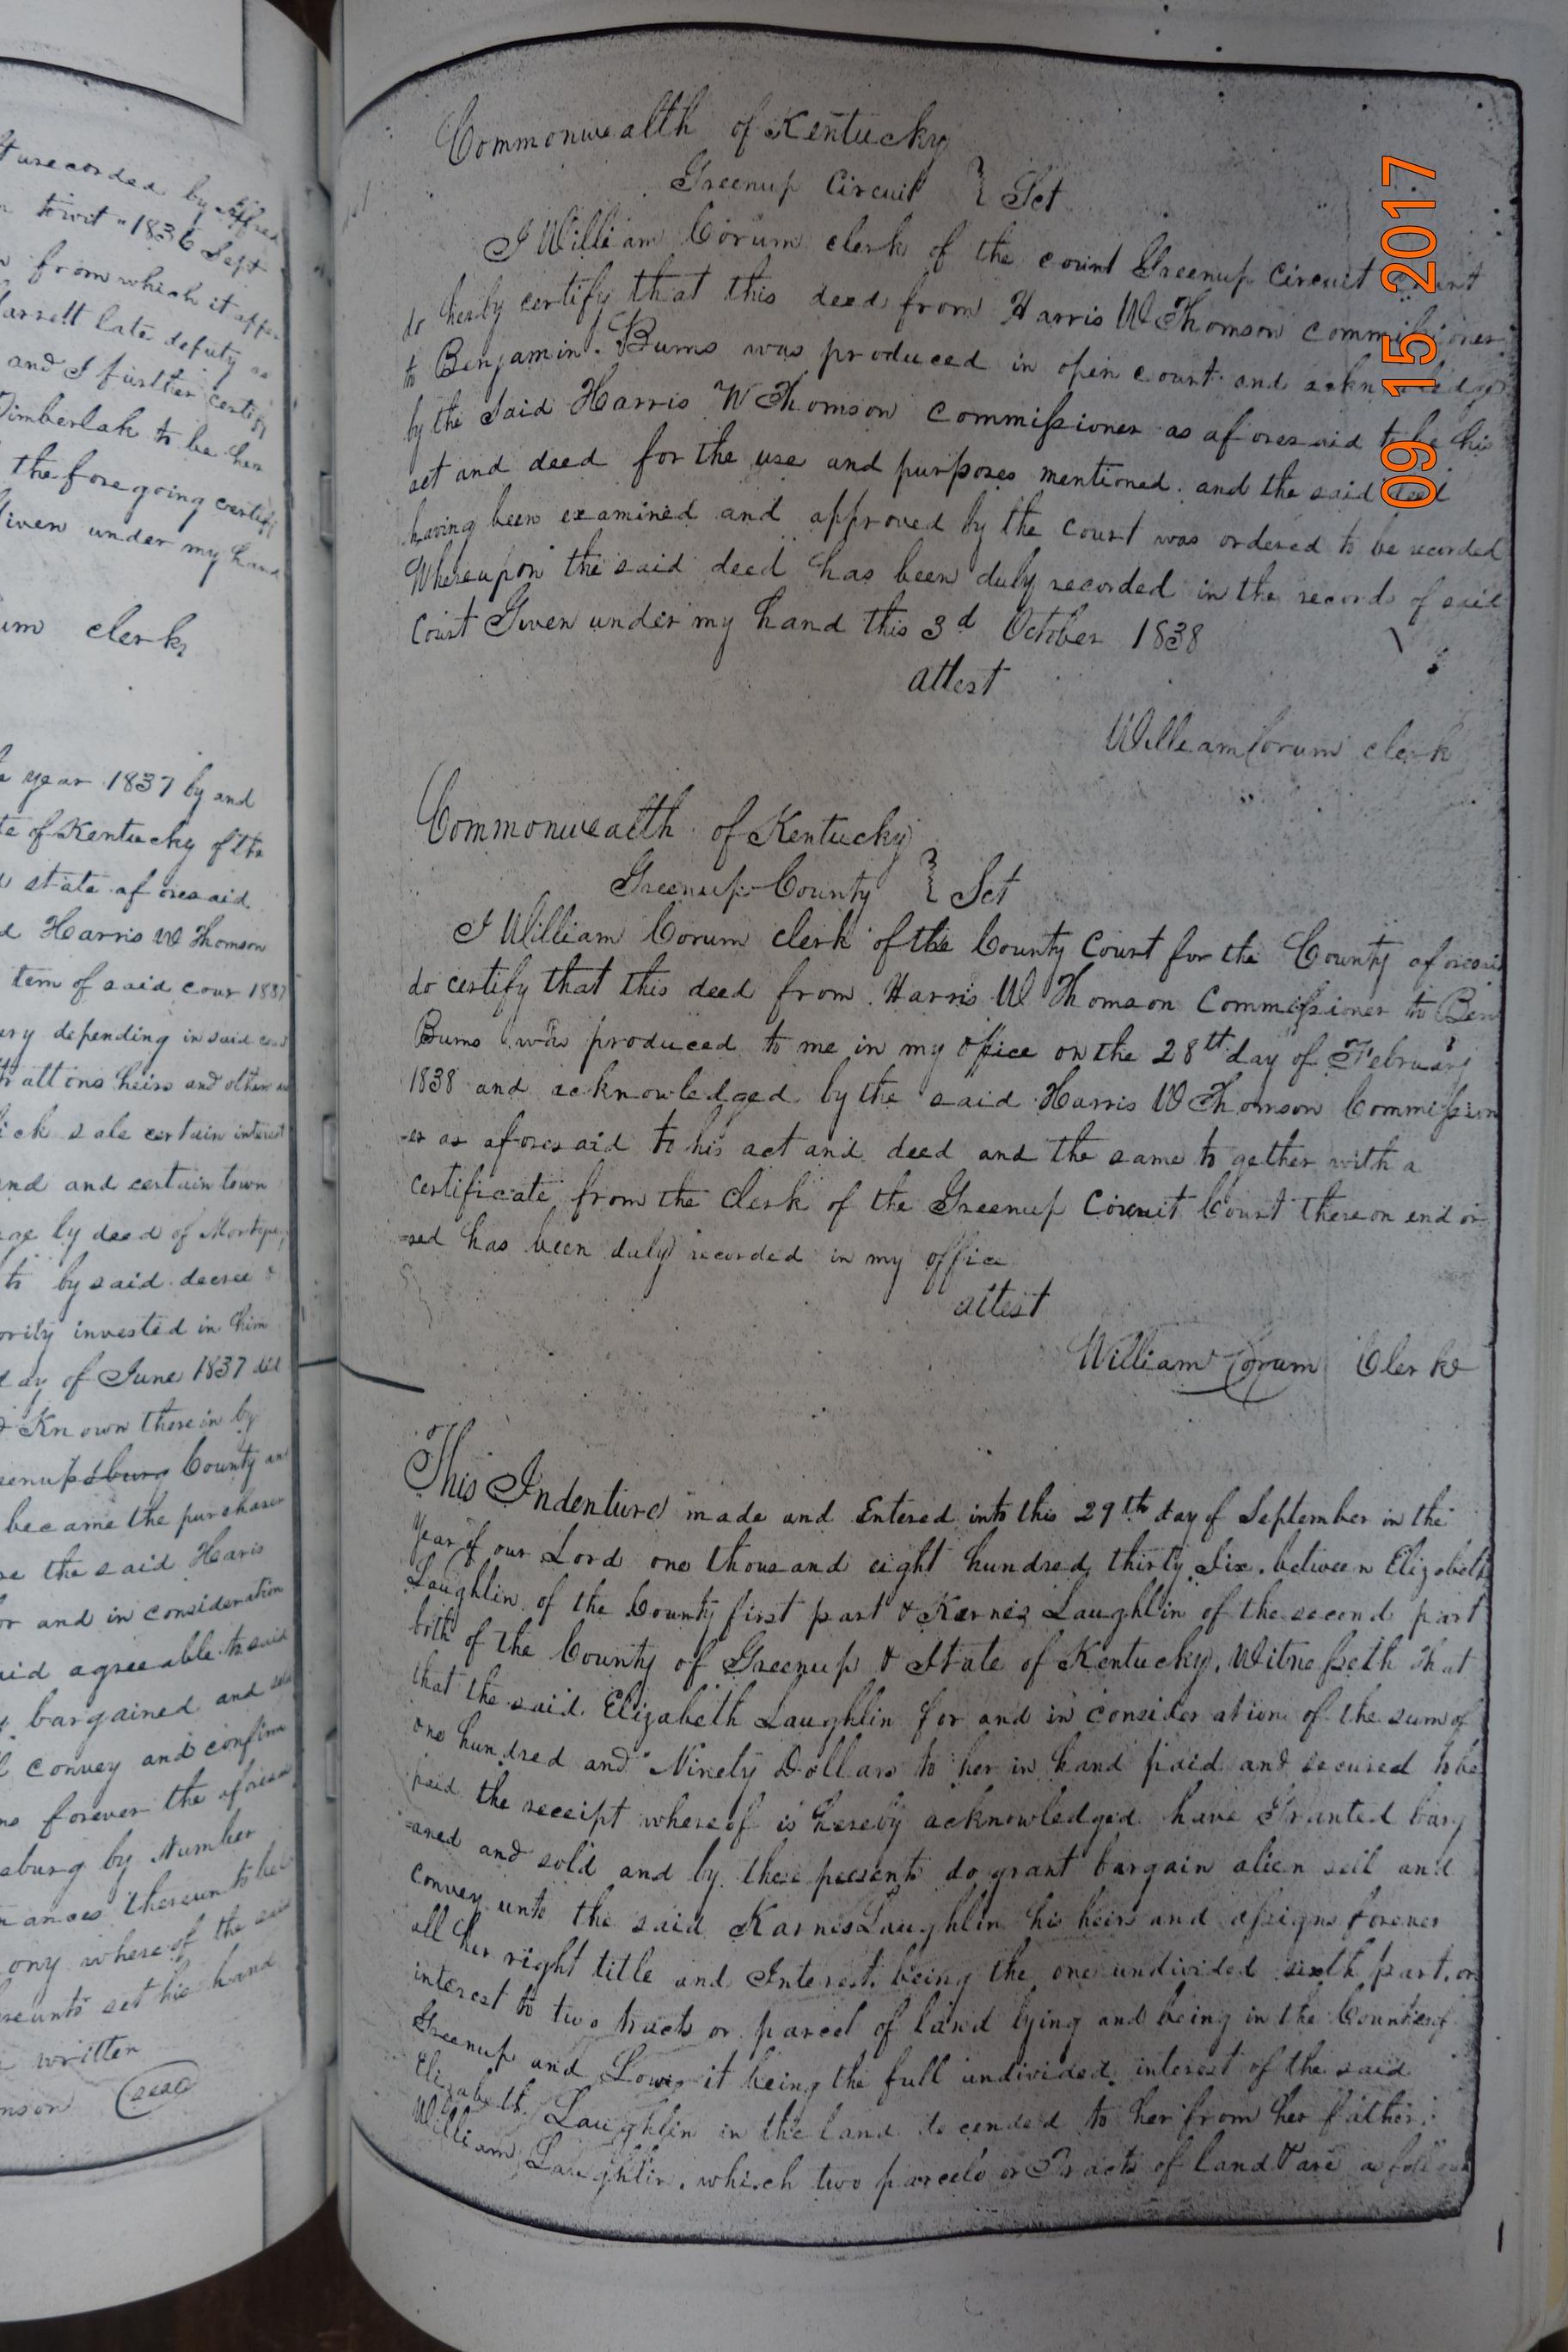 recorded by Alfred
towit " 1836 Sept
from which it appe
late deputy
and I further certify
Timberlak to be her
the foregoing certif
Given under my hand
clerk
year 1837 by and
of Kentucky of the
state aforesaid
Harris W Thomson
term of said cour 1837
depending in said
heirs and others
sale certain interest
and certain town
by deed of Mortgage
to by said decree &
invested in him
day of June 1837 did
Known therein by
Greenupsburg County an
became the purchaser
the said Haris
or and in consideration
agreeable to said
bargained and
convey and confirm
forever the aforesaid
by Number
thereunto
ony whereof the said
hereunto set his hand
written
(seal)
Commonwealth of Kentucky
Greenup Circuit } Sct
I William Corum clerk of the court Greenup Circuit
do herby certify that this deed from Harris W Thomson commissioner
to Benjamin Burns was produced in open court and acknowledged
by the said Harris W Thomson commissioner as aforesaid to be his
act and deed for the use and purposes mentioned. and the said deed
having been examined and approved by the court was ordered to be recorded
Whereupon the said deed has been duly recorded in the records of said
Court Given under my hand this 3d October 1838
attest
William Corum clerk
Commonwealth of Kentucky
Greenup County } Sct
I William Corum clerk of the County Court for the County aforesaid
do certify that this deed from Harris W Thomson Commissioner to Ben
Burns was produced to me in my office on the 28th day of February
1838 and acknowledged by the said Harris W Thomson Commission
=er as aforesaid to his act and deed and the same to gether with a
certificate from the clerk of the Greenup Circuit Court thereon endor
=sed has been duly recorded in my office
attest
William Corum Clerk
This Indenture made and Entered into this 29th day of September in the
Year of our Lord one thousand eight hundred thirty Six. between Elizabeth
Laughlin of the County first part & Kernes Laughlin of the second part
both of the County of Greenup & State of Kentucky. Witnesseth that
that the said Elizabeth Laughlin for and in consideration of the sum of
one hundred and Ninety Dollars to her in hand paid and secured to be
paid the receipt whereof is hereby acknowledged have Granted barg
=aned and sold and by these presents do grant bargain alien sell and
convey unto the said Karnes Laughlin his heirs and assigns forever
all her right title and Interest. being the one undivided sixth part. or
interest to two tracts or parcel of land lying and being in the Counties of
Greenup and Lewis it being the full undivided interest of the said
Elizabeth Laughlin in the land decended to her from her father
William Laughlin. which two parcels or Tracts of land & are as follows
09 15 2017